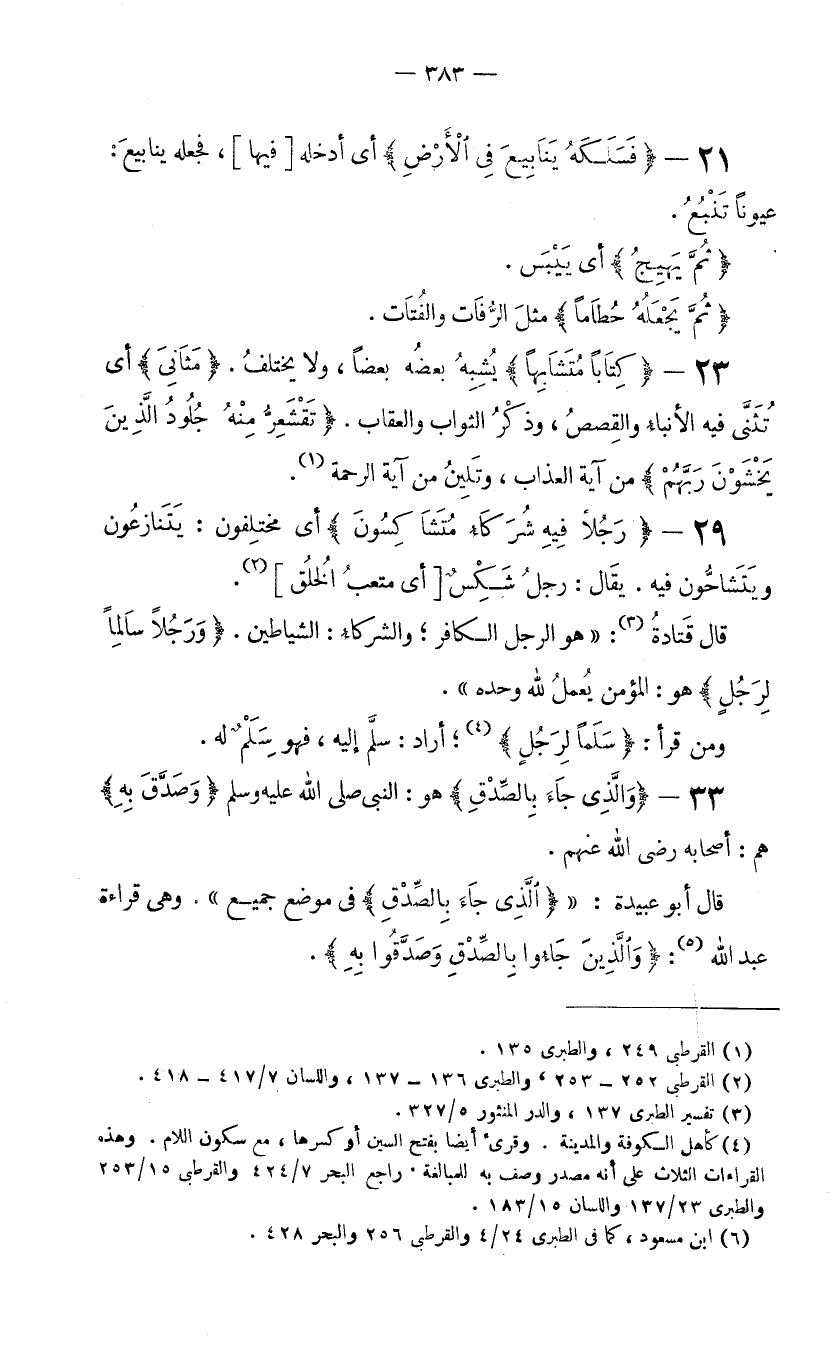 — ٣٨٣ —
٢١ — ﴿ فَسَلَكَهُ يَنَابِيعَ فِى ٱلْأَرْضِ ﴾ أى أدخله [ فيها ] ، فجعله ينابيعَ :
عيوناً تَنْبُعُ .
﴿ ثُمَّ يَهِيجُ ﴾ أى يَيْبَس .
﴿ ثُمَّ يَجْعَلُهُ حُطَاماً ﴾ مثلَ الرُّفَات والفُتَات .
٢٣ — ﴿ كِتَاباً مُتَشَابِهاً ﴾ يُشبِهُ بعضُه بعضاً ، ولا يختلفُ . ﴿ مَثَانِىَ ﴾ أى
تُثَنَّى فيه الأنباء والقِصصُ ، وذكْرُ الثواب والعقاب . ﴿ تَقْشَعِرُّ مِنْهُ جُلُودُ الَّذِينَ
يَخْشَوْنَ رَبَّهُمْ ﴾ من آية العذاب ، وتَلِينُ من آية الرحمة (١).
٢٩ — ﴿ رَجُلاً فِيهِ شُرَكَاءِ مُتَشَاكِسُونَ ﴾ أى مختلِفون : يَتَنازعُون
ويَتَشاحُّون فيه . يقَال : رجلٌ شَكْسٌ [ أى متعبُ الخُلُق ] (٢).
قال قَتادةُ (٣): « هو الرجل الكافر ؛ والشركاء : الشياطين . ﴿ وَرَجُلاً سالِماً
لِرَجُلٍ ﴾ هو : المؤمن يُعملُ لله وحده » .
ومن قرأ : ﴿ سَلَماً لِرَجُلٍ ﴾ (٤) ؛ أراد : سلَّم إليه ، فهو سِلَمْ له .
٣٣ — ﴿ وَالَّذِى جَاءَ بِالصِّدْقِ ﴾ هو : النبى صلى الله عليه وسلم ﴿ وَصَدَّقَ بِهِ ﴾
هم : أصحابه رضى الله عنهم .
قال أبو عبيدة : « ﴿ ٱلَّذِى جَاءَ بِالصِّدْقِ ﴾ فى موضع جميع » . وهى قراءة
عبد الله (٥): ﴿ وَٱلَّذِينَ جَاءُوا بِالصِّدْقِ وَصَدَّقُوا بِهِ ﴾ .
(١) القرطبى ٢٤٩ ، والطبرى ١٣٥ .
(٢) القرطبى ٢٥٢ — ٢٥٣ ، والطبرى ١٣٦ — ١٣٧ ، واللسان ٤١٧/٧ — ٤١٨ .
(٣) تفسير الطبرى ١٣٧ ، والدر المنثور ٣٢٧/٥ .
(٤) كأهل الكوفة والمدينة . وقرىء أيضا بفتح السين أو كسرها ، مع سكون اللام . وهذه
القراءات الثلاث على أنه مصدر وصف به للمبالغة . راجع البحر ٤٢٤/٧ والقرطبى ٢٥٣/١٥
والطبرى ١٣٧/٢٣ واللسان ١٨٣/١٥ .
(٦) ابن مسعود ، كما فى الطبرى ٤/٢٤ والقرطبى ٢٥٦ والبحر ٤٢٨ .